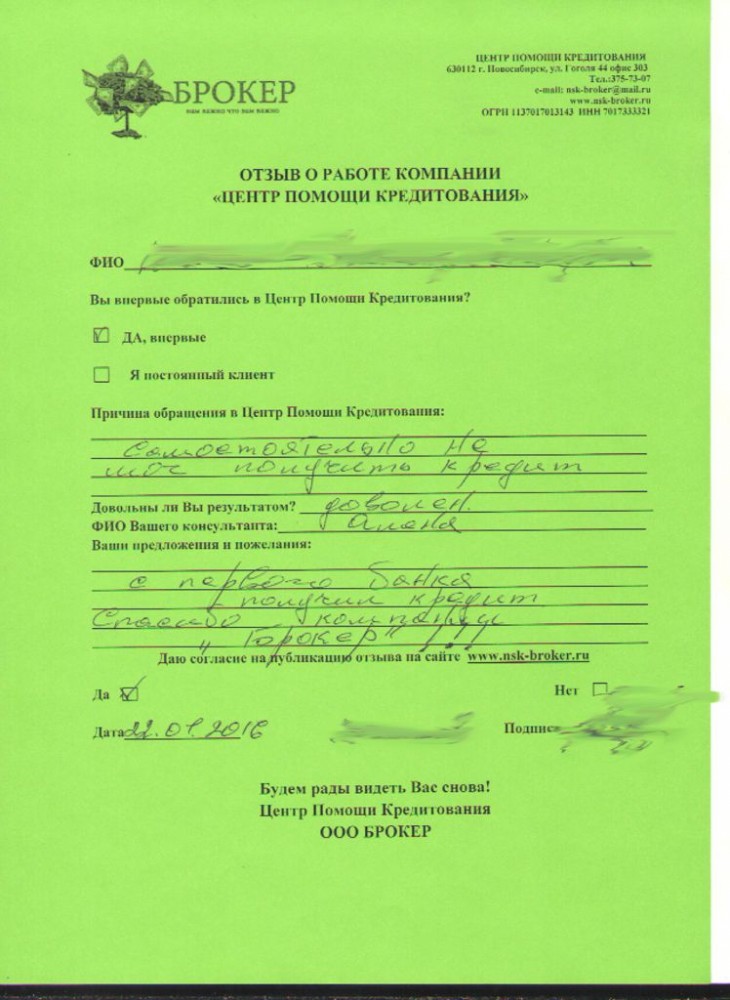 БРОКЕР
НАМ ВАЖНО ЧТО ВАМ ВАЖНО
ЦЕНТР ПОМОЩИ КРЕДИТОВАНИЯ
630112 г. Новосибирск, ул. Гоголя 44 офис 303
Тел.:375-73-07
e-mail: nsk-broker@mail.ru
www.nsk-broker.ru
ОГРН 1137017013143 ИНН 7017333321
ОТЗЫВ О РАБОТЕ КОМПАНИИ
«ЦЕНТР ПОМОЩИ КРЕДИТОВАНИЯ»
ФИО
Вы впервые обратились в Центр Помощи Кредитования?
ДА, впервые
Я постоянный клиент
Причина обращения в Центр Помощи Кредитования:
Самостоятельно не
мог получить кредит
Довольны ли Вы результатом? доволен.
ФИО Вашего консультанта: Алена
Ваши предложения и пожелания:
с первого банка
получил кредит
Спасибо компании
„Брокер" !!!
Даю согласие на публикацию отзыва на сайте www.nsk-broker.ru
Да
Нет
Дата 22.01.2016
Подпись
Будем рады видеть Вас снова!
Центр Помощи Кредитования
ООО БРОКЕР